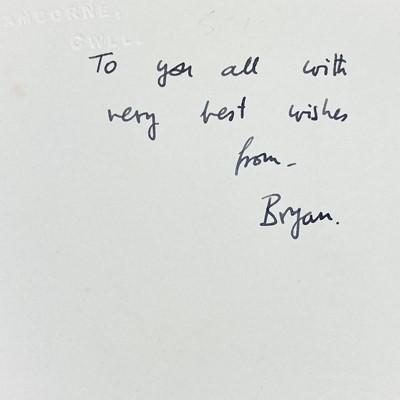 AMBORNE,
To you all with
very best wishes
from-
Bryan.